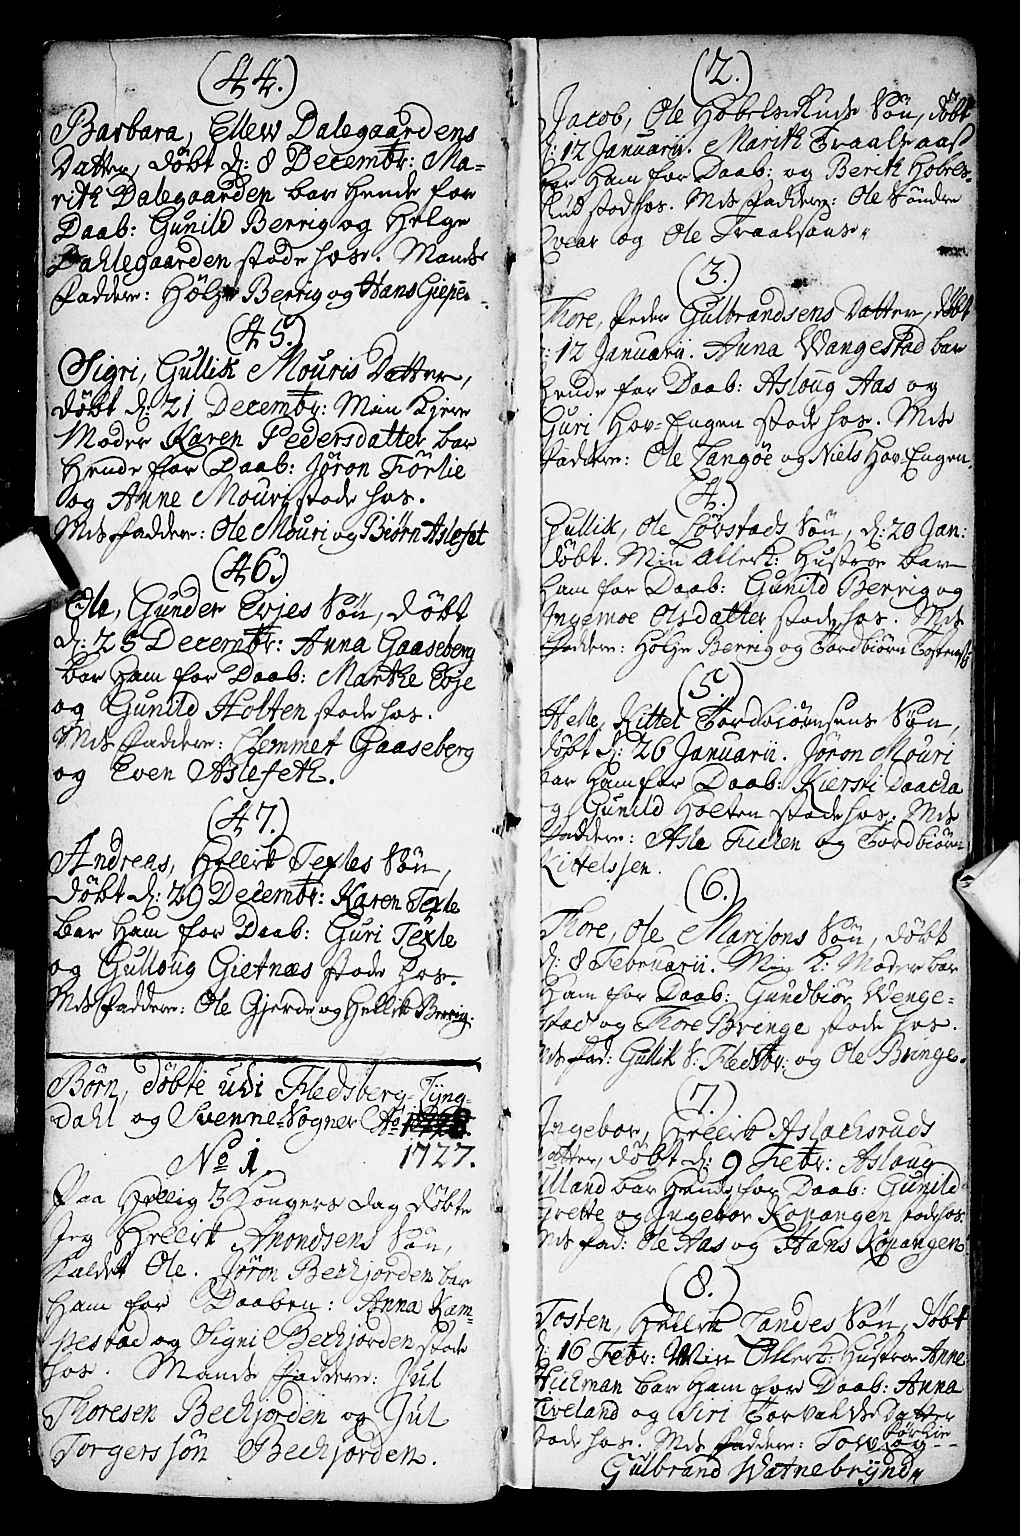 (44.)
Barbara, Ellew Dalegaardens
Datter, døbt d: 8 Decembr: Ma-
rith Dalegaarden bar hende for
Daab: Gunild Berrig og Helge
Dahlegaarden stode hos. Mands
faddere: Hølje Berrig og Hans Giepe.
(45.)
Sigri, Gullik Mouris Datter,
døbt d: 21 Decembr: Min kjere
Moder Karen Pedersdatter bar
hende for Daab: Jøron Førlie
og Anne Mouri stode hos.
Mds faddere: Ole Mouri og Biørn Aslefet
(46.)
Ole, Gunder Evjes Søn, døbt
d: 25 Decembr: Anna Gaaseberg
bar ham for Daab: Marthe Tøje
og Gunild Holten stode hos.
Mds faddere: Clemmet Gaaseberg
og Even Aslefeth.
(47.)
Andreas, Hellik Texles Søn,
døbt d: 29 Decembr: Karen Texle
bar ham for Daab: Guri Texle
og Gulloug Gietnæs stode hos.
Mds faddere: Ole Gjerde og Hellik Berrig.
Børn, døbte udi Fledsberg-Tyng-
dahl og Svenne-Sogner Ao
1727.
No 1.
Paa Hellig 3 Kongers dag døbte
jeg Hellik Amondsens Søn,
kaldet Ole. Jøron Bechjorden bar
ham for Daaben: Anna Kam-
pestad og Signi Bechjorden stode
hos. Mands faddere: Jul
Thoresen Bechjorden og Gul
Torgerssøn Bechjorden.
(2.)
Jacob, Ole Hobelsruds Søn, døbt
d: 12 Januarii. Marith Traalsaas
bar ham for Daab: og Berith Hobels-
rud stod hos. Mds faddere: Ole Søndre
Svear og Ole Traalsaas.
(3.)
Thore, Peder Gulbrandsens Datter, døbt
d: 12 Januarii. Anna Wangestad bar
hende for Daab: Asloug Aas og
Guri Hov-Engen stode hos. Mds
faddere: Ole Langøe og Niels Hov-Engen.
(4.)
Gullik, Ole Løvstads Søn, d: 20 Jan:
døbt. Min Allerk: Hustroe bar
ham for Daab: Gunild Berrig og
Ingemoe Olsdatter stode hos. Mds
faddere: Holje Berrig og Tordbiørn
(5.)
Helle, Kittel Tordbiørnsens Søn,
døbt d: 26 Januarii. Jøron Mouri
bar ham for Daab: Kiersti Daacha
og Gunild Holten stode hos. Mds
faddere: Asle Fulen og Tordbiørn
Kittelssen.
(6.)
Thore, Ole Marisons Søn, døbt
d: 8 Februarii. Min K: Moder bar
ham for Daab: Gundbiør Wenge-
stad og Thore Bringe stode hos.
Mds fad: Gullik S. og Ole Bringe.
(7.)
Ingebor, Hellik Aslachsruds
Datter, døbt d: 9 Febr: Asloug
Ulland bar hende for Daab: Gunild
Grette og Ingebor Kopangen stode hos.
Mds fad: Ole Aas og Hans Kopangen.
(8.)
Tosten, Hellik Landes Søn, døbt
d: 16 Febr: Min Allerk: Hustroe Anne
Hickman bar ham for Daab: Anna
Liveland og Siri Torvalds Datter
stode hos. Mds faddere: Tow Førlie og
Gulbrand Watnebrynd